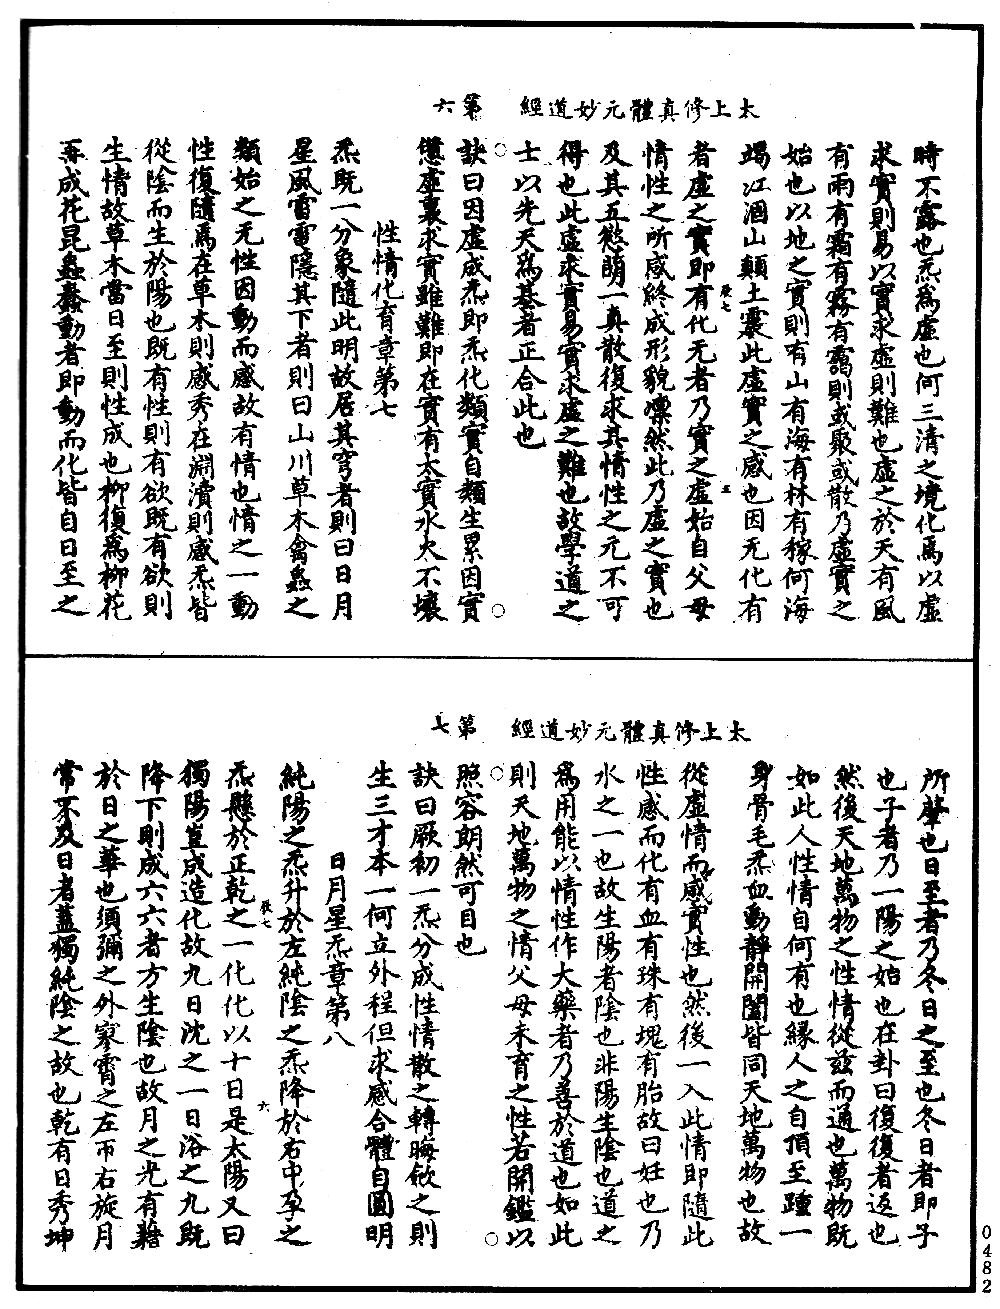 太上修真體元妙道經　第六
時不露也炁為虛也何三清之境化焉以虛
求實則易以實求虛則難也虛之於天有風
有雨有霜有霧有靄則或聚或散乃虛實之
始也以地之實則有山有海有林有稼何海
竭江涸山顛土震此虛實之感也因无化有
辰七　五
者虛之實即有化无者乃實之虛始自父母
情性之所感終成形貌凜然此乃虛之實也
及其五慾萌一真散復求其情性之元不可
得也此虛求實易實求虛之難也故學道之
士以先天為基者正合此也
訣曰因虛成炁即炁化類實自類生累因實
愆虛裏求實雖難即在實有太實水火不壞
性情化育章第七
炁既一分象隨此明故居其穹者則曰日月
星風雷電隱其下者則曰山川草木禽蟲之
類始之无性因動而感故有情也情之一動
性復隨焉在草木則感秀在淵瀆則感炁皆
從陰而生於陽也既有性則有欲既有欲則
生情故草木當日至則性成也柳復為柳花
再成花昆蟲蠢動者即動而化皆自日至之
太上修真體元妙道經　第七
所肇也日至者乃冬日之至也冬日者即子
也子者乃一陽之始也在卦曰復復者返也
然後天地萬物之性情從茲而通也萬物既
如此人性情自何有也緣人之自頂至踵一
身骨毛炁血動靜開闔皆同天地萬物也故
從虛情而感實性也然後一入此情即隨此
性感而化有血有珠有塊有胎故曰妊也乃
水之一也故生陽者陰也非陽生陰也道之
為用能以情性作大藥者乃善於道也如此
則天地萬物之情父母未育之性若開鑑以
照容朗然可目也
訣曰厥初一炁分成性情散之轉晦斂之則
生三才本一何立外程但求感合體自圓明
日月星炁章第八
純陽之炁升於左純陰之炁降於右中孕之
炁懸於正乾之一化化以十日是太陽又曰
辰七　六
獨陽豈成造化故九日沈之一日浴之九既
降下則成六六者方生陰也故月之光有藉
於日之華也須彌之外寥霄之左帀右旋月
常不及日者蓋獨純陰之故也乾有日秀坤
0482